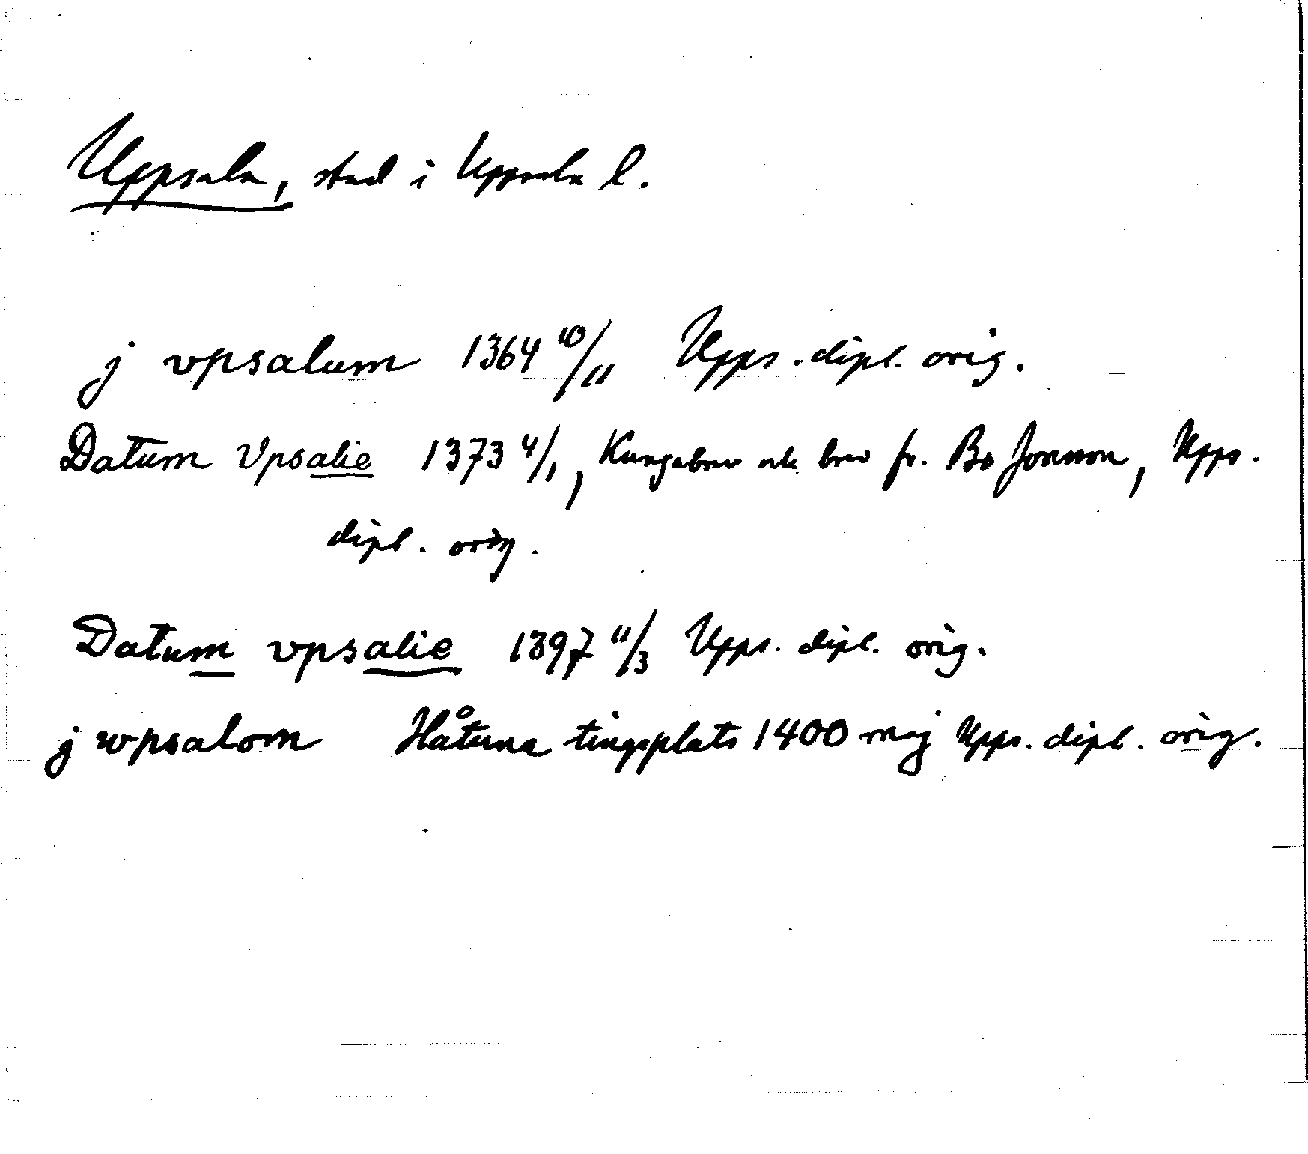 Uppsala, stad i Uppsala l.
j vpsalum 1364 10/11 Upps. dipl. orig.
Datum Vpsalie 1373 4/1, Kungabrev och brev fr. Bo Jonsson, Upps.
dipl. orig.
Datum vpsalie 1397 11/3 Upps. dipl. orig.
j wpsalom Håtuna tingsplats 1400 maj Upps. dipl. orig.